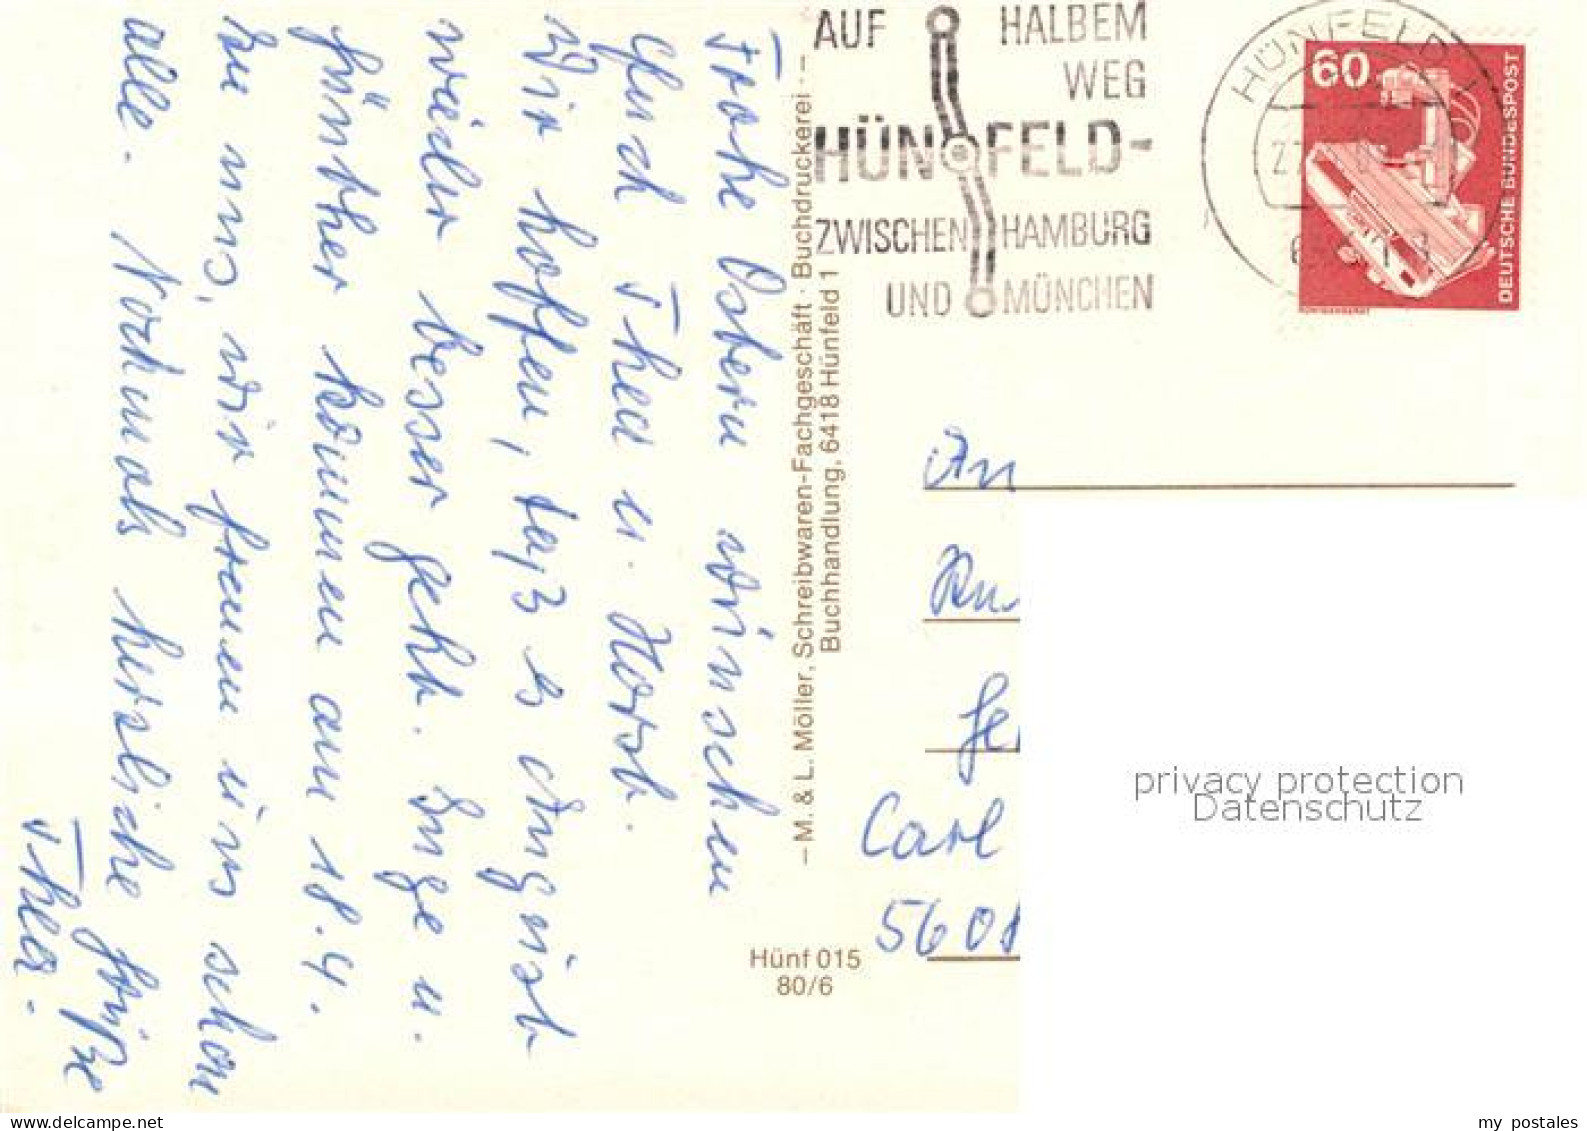 Frohe Ostern wünschen
Euch Thea u. Horst.
Wir hoffen, daß es August
wieder besser geht. Inge u.
Günther kommen am 18.4.
zu uns, wir freuen uns schon
alle. Nochmals herzliche Grüße
Thea.
– M. & L. Möller, Schreibwaren-Fachgeschäft · Buchdruckerei · –
Buchhandlung, 6418 Hünfeld 1
Hünf 015
80/6
AUF HALBEM
WEG
HÜNFELD-
ZWISCHEN HAMBURG
UND MÜNCHEN
HÜNFELD 1
60
DEUTSCHE BUNDESPOST
An
Carl
5608
privacy protection
Datenschutz
my postales